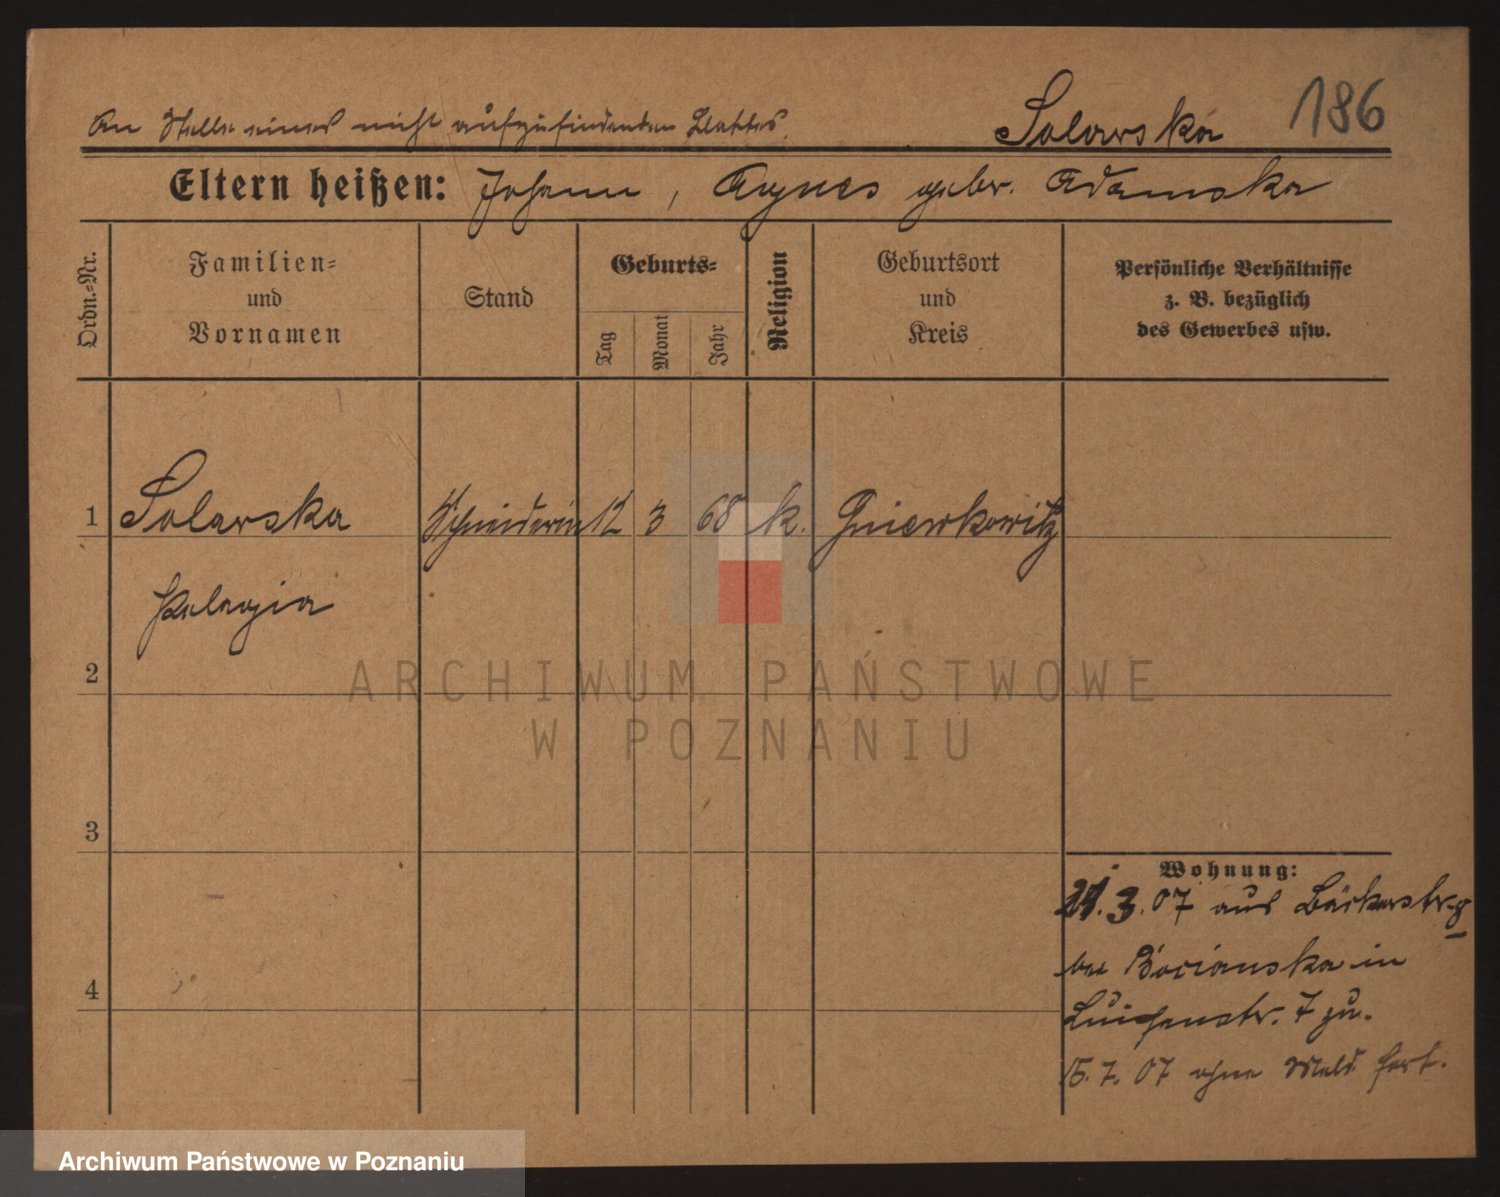 An Stelle eines nicht aufzufindenden Blattes.
Solarska
186
Eltern heißen: Johann, Agnes gebr. Adamska
Ordn.-Nr.
Familien-
und
Vornamen
Stand
Geburts-
Tag
Monat
Jahr
Religion
Geburtsort
und
Kreis
Persönliche Verhältnisse
z. B. bezüglich
des Gewerbes usw.
1 Solarska Schneiderin 12 3 68 k. Gniewkowitz
Pelagia
2
3
4
Wohnung:
21.3.07 aus Bäckerstr.
bei Bocianska in
Luisenstr. 7 zu.
15.7.07 ohne Meld. fort.
ARCHIWUM PAŃSTWOWE
W POZNANIU
Archiwum Państwowe w Poznaniu